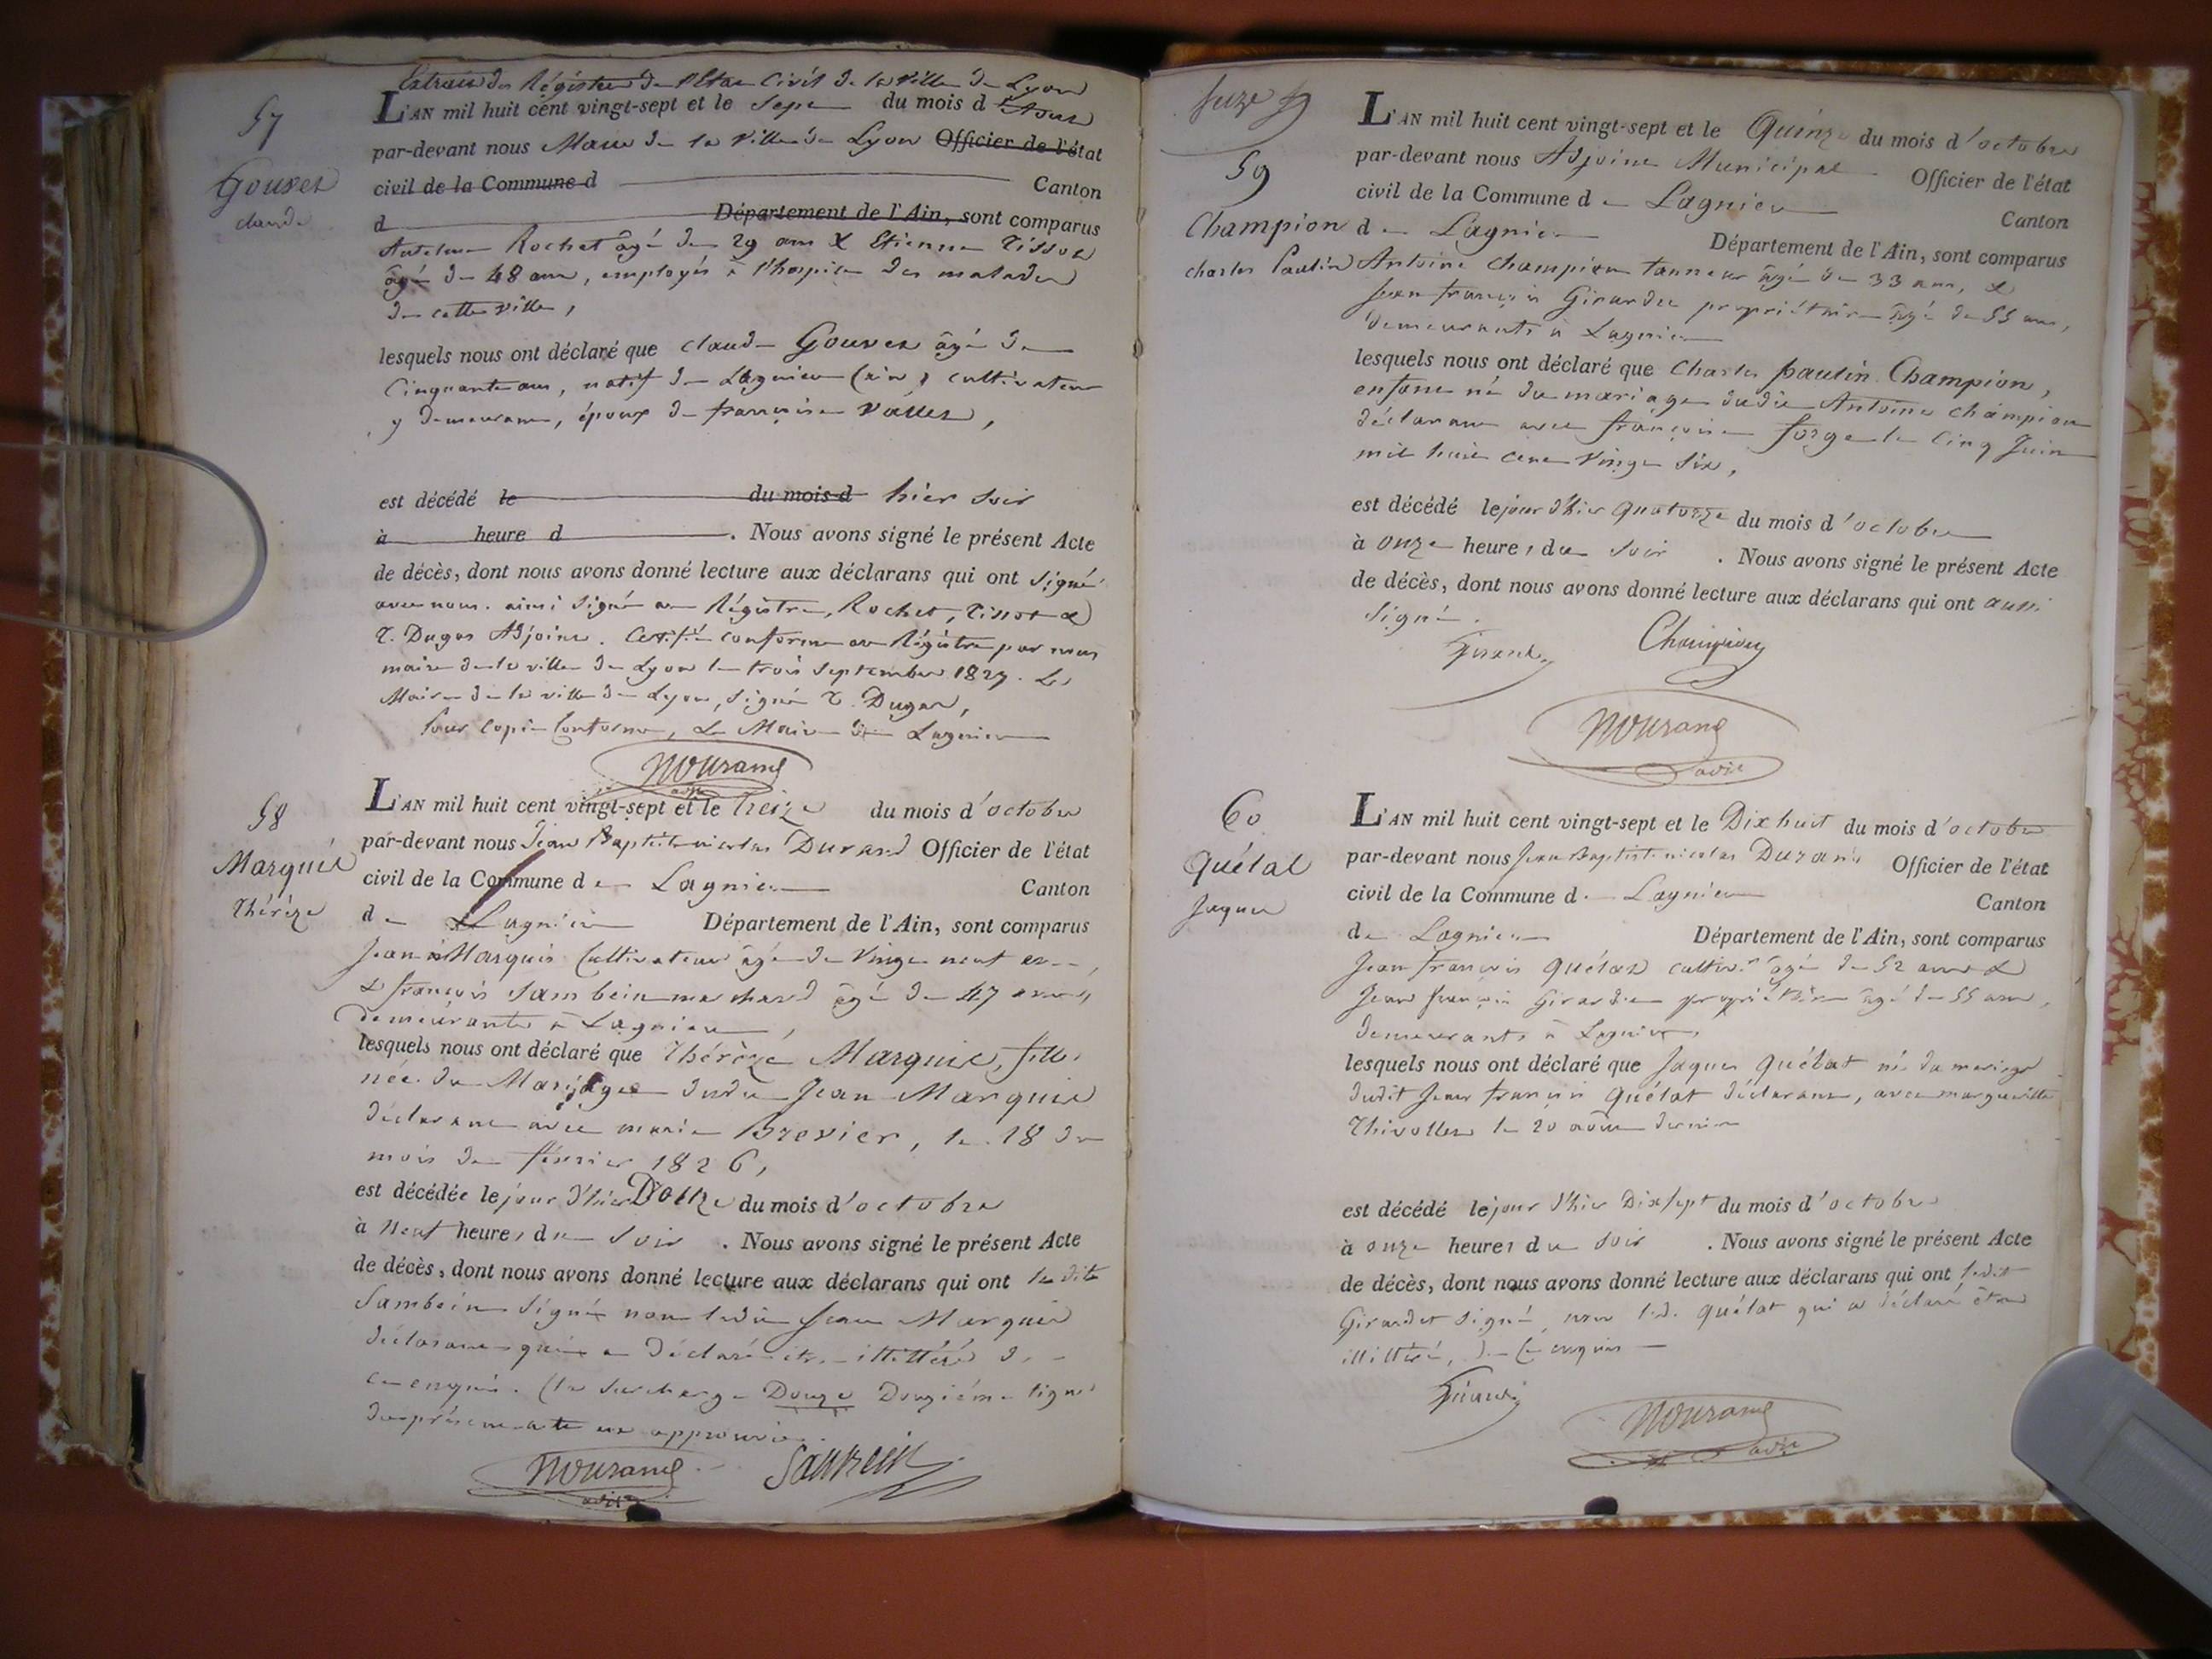 Extrait des Régistres de l'Etat Civil de la Ville de Lyon
57
Gouvet
claude
L'AN mil huit cent vingt-sept et le Sept du mois d'Aout
par-devant nous Maire de la Ville de Lyon Officier de l'état
civil de la Commune d Canton
d Département de l'Ain, sont comparus
Antelme Rochet âgé de 29 ans & Etienne Tissot
âgé de 48 ans, employés à l'hospice des malades
de cette ville,
lesquels nous ont déclaré que claude Gouvet âgé de
Cinquante ans, natif de Lagnieu (ain) cultivateur
y demeurant, époux de françoise Vallet,
est décédé le du mois d hier soir
à heure d . Nous avons signé le présent Acte
de décès, dont nous avons donné lecture aux déclarans qui ont Signé
avec nous. ainsi Signé au Régistre, Rochet, Tissot &
T. Dugas Adjoint. Certifié conforme au Régistre par nous
maire de la ville de Lyon le trois Septembre 1827. Le
Maire de la ville de Lyon, Signé T. Dugas,
Pour Copie Conforme, Le Maire de Lagnieu
58
Marquis
Thérèze
L'AN mil huit cent vingt-sept et le treize du mois d'octobre
par-devant nous Jean Baptiste nicolas Durand Officier de l'état
civil de la Commune de Lagnieu Canton
de Lagnieu Département de l'Ain, sont comparus
Jean Marquis Cultivateur âgé de Vingt neuf ans,
& françois Sambein marchand âgé de 47 ans,
demeurants à Lagnieu,
lesquels nous ont déclaré que Thérèze Marquis, fille
née du Mariage dudit Jean Marquis
déclarant avec marie Brevier, le 18 du
mois de février 1826,
est décédée le jour d'hier Douze du mois d'octobre
à neuf heures du Soir . Nous avons signé le présent Acte
de décès, dont nous avons donné lecture aux déclarans qui ont ledit
Sambein Signé non ledit Jean Marquis
déclarant qui a Déclaré être illittéré de
ce enquis. (la Surcharge Douze Douzième ligne
du présent acte est approuvée.
Suze 59
59
Champion
charles Paulin
L'AN mil huit cent vingt-sept et le Quinze du mois d'octobre
par-devant nous Adjoint Municipal Officier de l'état
civil de la Commune de Lagnieu Canton
de Lagnieu Département de l'Ain, sont comparus
Antoine Champion tanneur âgé de 33 ans, &
Jean françois Girardet propriétaire âgé de 55 ans,
demeurants à Lagnieu
lesquels nous ont déclaré que Charles paulin Champion,
enfant né du mariage dudit Antoine Champion
déclarant avec françoise forge le Cinq Juin
mil huit cent Vingt Six,
est décédé le jour d'hier quatorze du mois d'octobre
à onze heures du Soir . Nous avons signé le présent Acte
de décès, dont nous avons donné lecture aux déclarans qui ont aussi
Signé.
Champion
60
Quélat
Jaques
L'AN mil huit cent vingt-sept et le Dix huit du mois d'octobre
par-devant nous Jean Baptiste nicolas Durand Officier de l'état
civil de la Commune de Lagnieu Canton
de Lagnieu Département de l'Ain, sont comparus
Jean françois Quélat cultivr âgé de 52 ans &
Jean françois Girardet propriétaire âgé de 55 ans,
demeurants à Lagnieu
lesquels nous ont déclaré que Jaques Quélat né du mariage
dudit Jean françois Quélat déclarant, avec marguerite
Thivollet le 20 aout dernier
est décédé le jour d'hier Dix Sept du mois d'octobre
à onze heures du Soir . Nous avons signé le présent Acte
de décès, dont nous avons donné lecture aux déclarans qui ont ledit
Girardet Signé, non led. Quélat qui a déclaré être
illittéré, de ce enquis